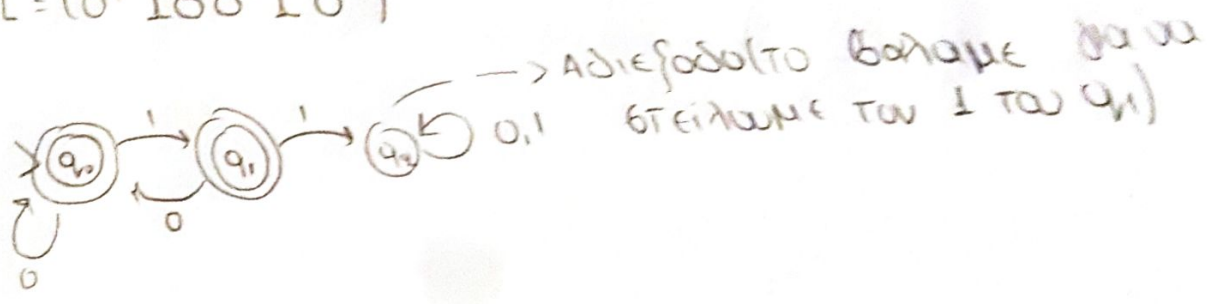 → Αδιέξοδο (το βάλαμε για να
στείλουμε τον 1 του q₁)
1 1
q₀ q₁ q₂ 0,1
0
0